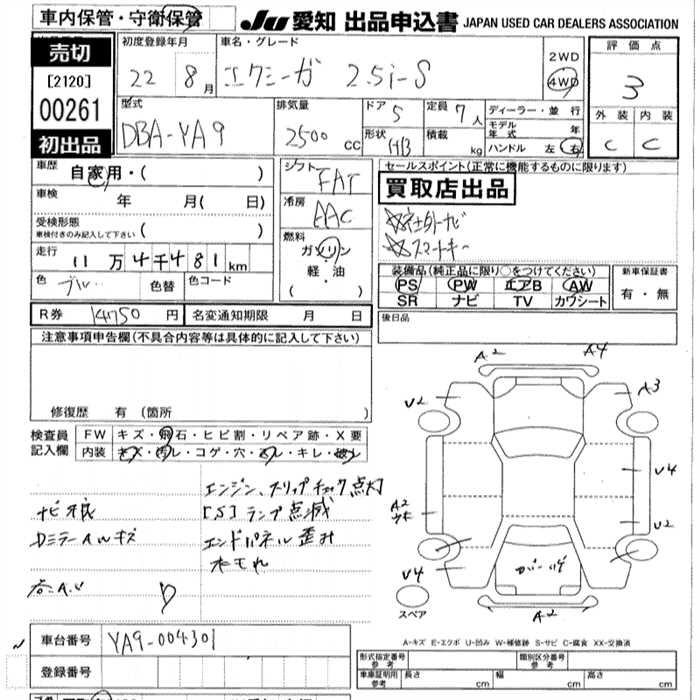 車内保管・守衛保管
JU 愛知 出品申込書 JAPAN USED CAR DEALERS ASSOCIATION
売切
[2120]
00261
初出品
初度登録年月
22 8月
車名・グレード
エクシーガ 2.5i-S
2WD
4WD
評価点
3
外装 内装
C C
型式
DBA-YA9
排気量
2500 cc
ドア 5
形状
定員 7人
積載 kg
ディーラー・並 行
モデル年式 年
ハンドル 左 右
車歴 自家用・( )
車検 年 月( 日)
受検形態
車検付きのみ記入して下さい ( )
走行 11万4千481km
色 ブルー 色替 色コード
R券 14750円 名変通知期限 月 日
シフト
FAT
冷房
AAC
燃料
ガソリン
軽・油
( ・ )
セールスポイント(正常に機能するものに限ります)
買取店出品
☆社外ナビ
☆スマートキー
装備品(純正品に限り○をつけてください)
PS PW エアB AW
SR ナビ TV カワシート
新車保証書
有・無
後日品
注意事項申告欄(不具合内容等は具体的に記入して下さい)
修復歴 有 (箇所 )
検査員記入欄
FW キズ・飛石・ヒビ割・リペア跡・X要
内装 キズ・汚レ・コゲ・穴・スレ・キレ・破レ
エンジン、スリップチェック点灯
ナビ不良 [S]ランプ点滅
Dミラー A11キズ エンドパネル歪み
水モれ
A2 A4
V2 A3
V4
A2
V2
V4
A2
スペア
A-キズ E-エクボ U-凹み W-補修跡 S-サビ C-腐食 XX-交換済
車台番号 YA9-004301
登録番号
形式指定番号 参考 類別区分番号 参考
車庫証明用 参考 長さ cm 幅 cm 高さ cm